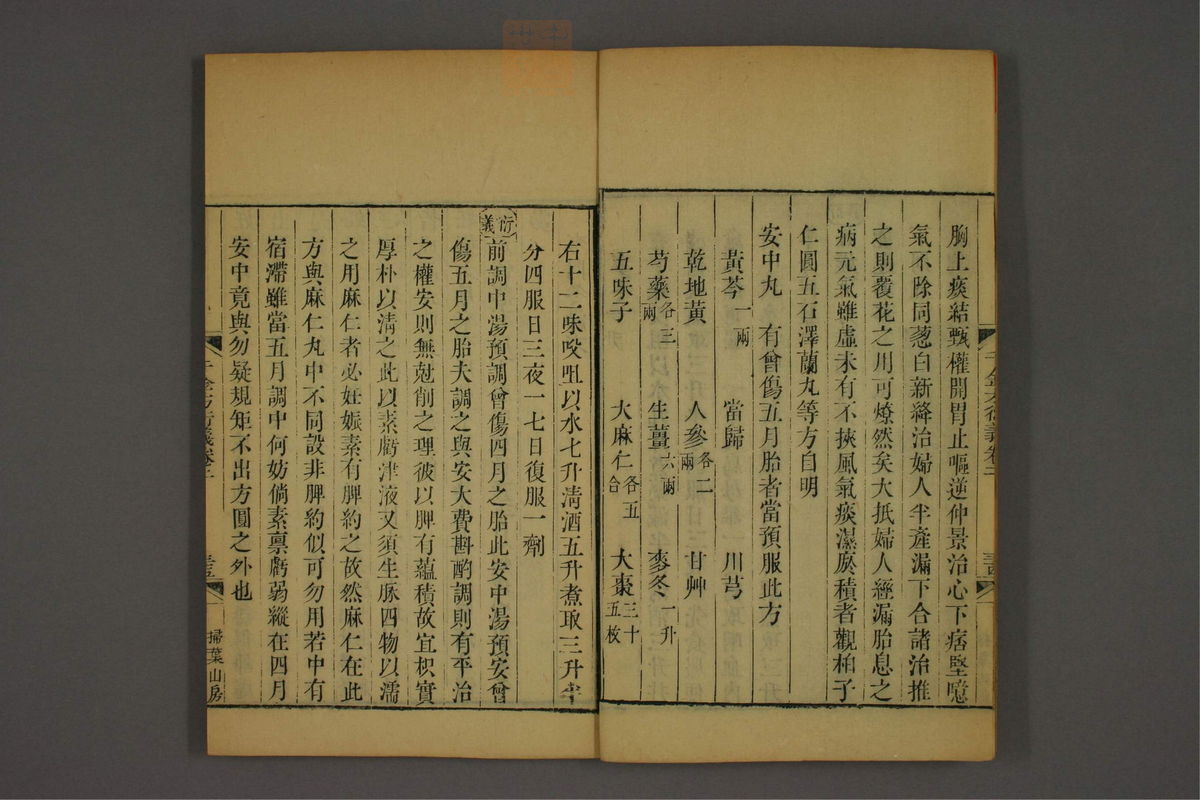 胸上痰結甄權開胃止嘔逆仲景治心下痞堅噫
氣不除同葱白新絳治婦人半產漏下合諸治推
之則覆花之用可燎然矣大抵婦人經漏胎息之
病元氣雖虛未有不挾風氣痰濕瘀積者觀柏子
仁圓五石澤蘭丸等方自明
安中丸　有曾傷五月胎者當預服此方
黃芩一兩　當歸　川芎
乾地黃　人參各二兩　甘艸
芍藥各三兩　生薑六兩　麥冬一升
五味子　大麻仁各五合　大棗三十五枚
千金方衍義卷二
右十二味㕮咀以水七升清酒五升煮取三升半
分四服日三夜一七日復服一劑
衍義
前調中湯預調曾傷四月之胎此安中湯預安曾
傷五月之胎夫調之與安大費斟酌調則有平治
之權安則無尅削之理彼以脾有蘊積故宜枳實
厚朴以清之此以素虧津液又須生脈四物以濡
之用麻仁者必妊娠素有脾約之故然麻仁在此
方與麻仁丸中不同設非脾約似可勿用若中有
宿滯雖當五月調中何妨倘素禀虧弱縱在四月
安中竟與勿疑規矩不出方圓之外也
千金方衍義卷二
掃葉山房